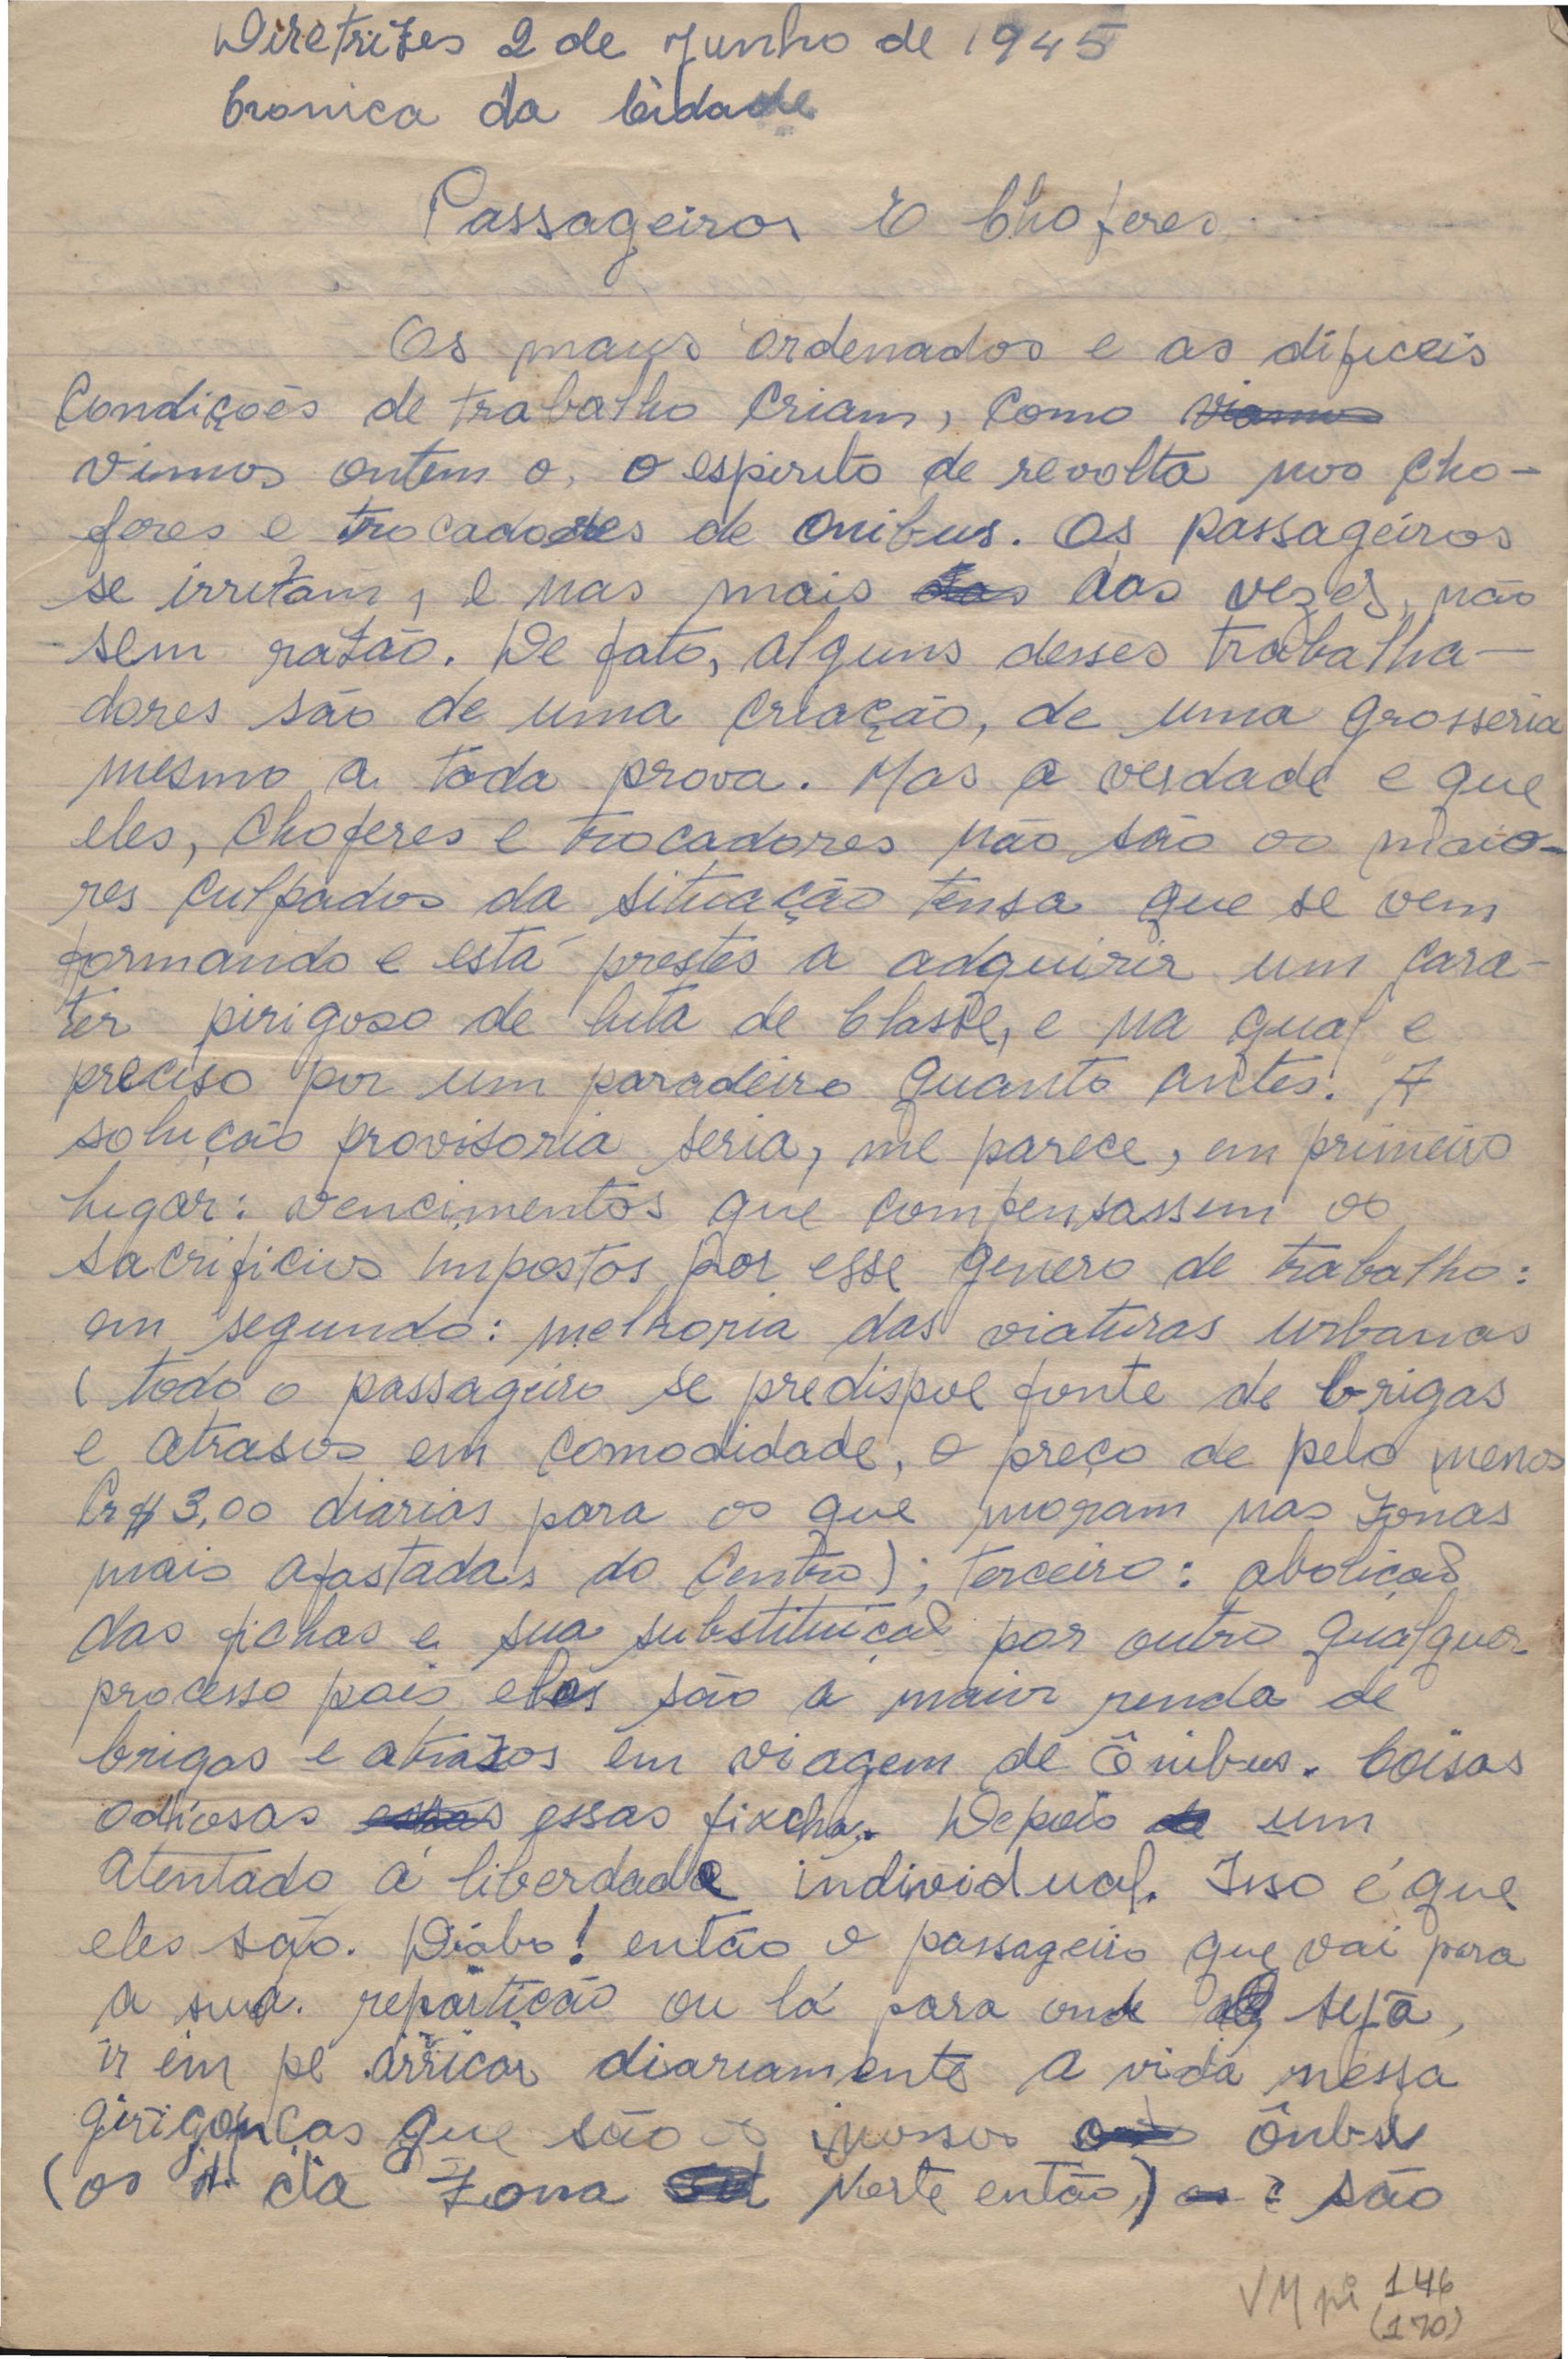 Diretrizes 2 de Junho de 1945
Cronica da Cidade
Passageiros E Choferes
Os maus ordenados e as dificeis
Condições de trabalho criam, como
vimos ontem o, o espirito de revolta nos cho-
feres e trocadores de onibus. Os passageiros
se irritam, e nas mais das vezes, não
sem razão. De fato, alguns desses trabalha-
dores são de uma criação, de uma grosseria
mesmo a toda prova. Mas a verdade e que
eles, Choferes e trocadores não são os maio-
res culpados da situação tensa que se vem
formando e está prestes a adquirir um cara-
ter pirigoso de luta de classe, e na qual e
preciso por um paradeiro quanto antes. A
solução provisoria seria, me parece, em primeiro
lugar: vencimentos que compensassem os
sacrificios impostos por esse genero de trabalho:
em segundo: melhoria das viaturas urbanas
(todo o passageiro se predispoe fonte de brigas
e atrasos em comodidade, o preço de pelo menos
Cr$ 3,00 diarias para os que moram nas zonas
mais afastadas do Centro); terceiro: abolição
das fichas e sua substituição por outro qualquer
processo pois elas são a maior renda de
brigas e atrazos em viagem de ônibus. Coisas
odiosas essas fixcha. Depois um
atentado á liberdade individual. Isso é que
eles são. Diabo! então o passageiro que vai para
a sua. repartição ou lá para onde seja,
ir em pé arricar diariamente a vida nessa
girigonças que são os nossos ônbus
(os da Zona Norte então,) são
VM pi 146
(170)